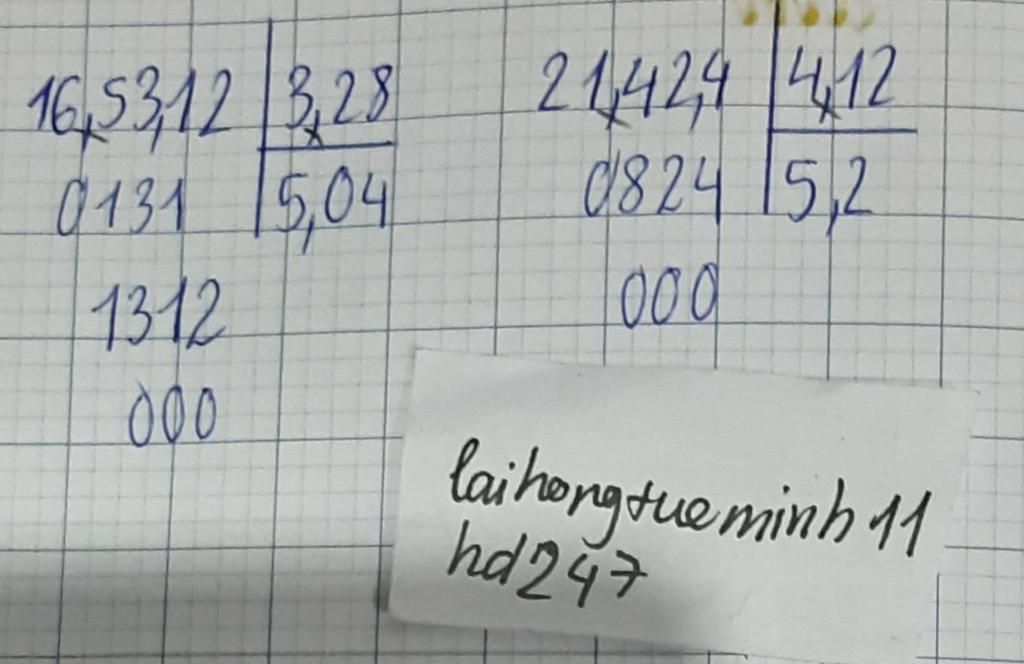 16,53,12 3,28
0131 5,04
1312
000
21,42,4 4,12
0824 5,2
000
laihongtueminh11
hd247